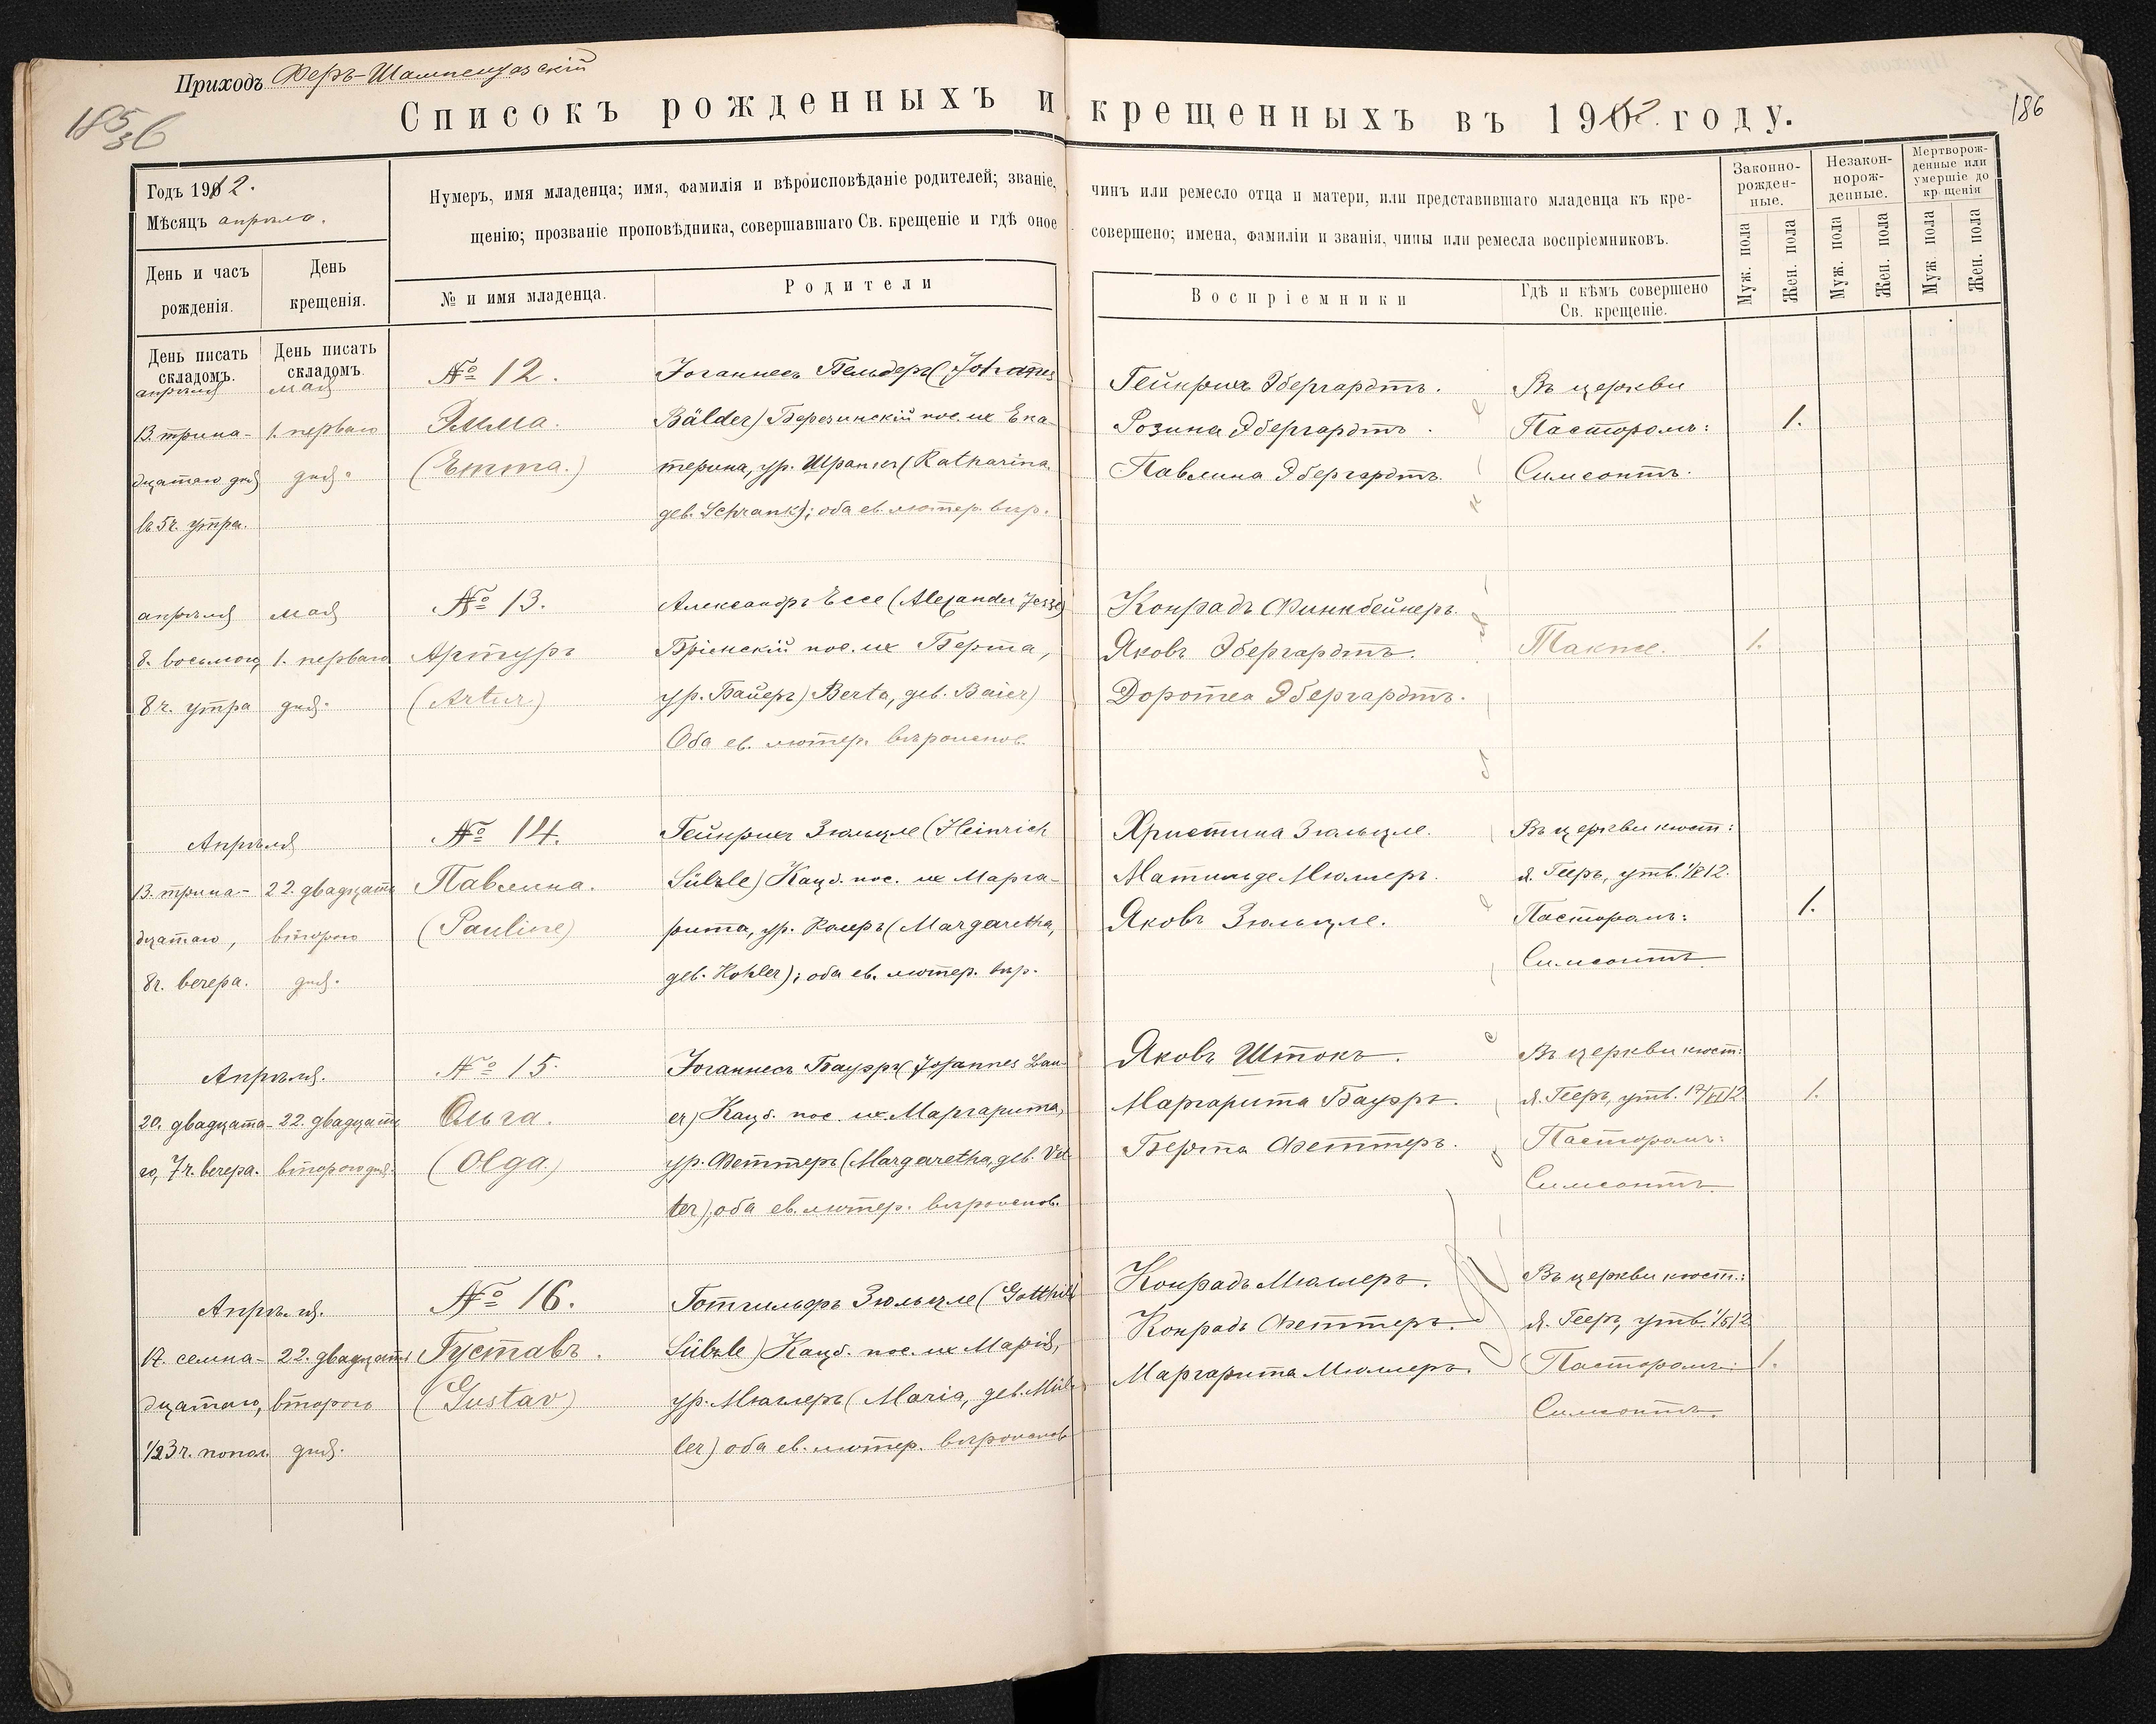 Приходъ Феръ-Шампенуазскій
185
36
186
Списокъ рожденныхъ и крещенныхъ въ 1912 году.
Годъ 1912.
Мѣсяцъ апрѣль.
Нумеръ, имя младенца; имя, фамилія и вѣроисповѣданіе родителей; званіе, чинъ или ремесло отца и матери, или представившаго младенца къ кре-
щенію; прозваніе проповѣдника, совершавшаго Св. крещеніе и гдѣ оное совершено; имена, фамиліи и званія, чины или ремесла воспріемниковъ.
Законно-
рожден-
ные.
Незакон-
норож-
денные.
Мертворож-
денные или
умершіе до
крещенія
Муж. пола
Жен. пола
Муж. пола
Жен. пола
Муж. пола
Жен. пола
День и часъ
рожденія.
День
крещенія.
№ и имя младенца.
Родители
Воспріемники
Гдѣ и кѣмъ совершено
Св. крещеніе.
День писать
складомъ.
День писать
складомъ.
апрѣля
13. трина-
дцатаго дня
въ 5 ч. утра.
мая
1. перваго
дня.
№ 12.
Эмма.
(Emma.)
Іоганнесъ Бельдеръ (Johannes
Bälder) Березинскій пос. их Ека-
терина, ур. Шранкъ (Katharina
geb. Schrank); оба ев. лютер. вѣр.
Гейнрихъ Эбергардтъ.
Розина Эбергардтъ.
Павлина Эбергардтъ.
Въ церкви
Пасторомъ:
Симсонтъ.
1.
апрѣля
8. восьмого,
8 ч. утра
мая
1. перваго
дня.
№ 13.
Артуръ
(Artur.)
Александръ Ессе (Alexander Jesse)
Бріенскій пос. их Берта,
ур. Байеръ) Berta, geb. Baier)
Оба ев. лютер. вѣроиспов.
Конрадъ Финкбейнеръ.
Яковъ Эбергардтъ.
Доротеа Эбергардтъ.
Также.
1.
Апрѣля
13. трина-
дцатаго,
8 ч. вечера.
22. двадцать
второго
дня.
№ 14.
Павлина.
(Pauline)
Гейнрихъ Зюльцле (Heinrich
Sülzle) Кацб. пос. их Марга-
рита, ур. Колеръ (Margaretha,
geb. Kohler); оба ев. лютер. вѣр.
Христина Зюльцле.
Матильде Мюллеръ.
Яковъ Зюльцле.
Въ церкви кюст:
Я. Гееръ, утв.
Пасторомъ:
Симсонтъ
1.
Апрѣля.
20. двадцата-
го, 7 ч. вечера.
22. двадцать
второго дня.
№ 15.
Ольга.
(Olga.)
Іоганнесъ Бауэръ (Johannes Bau-
er) Кацб. пос. их Маргарита,
ур. Феттеръ (Margaretha, geb. Vet-
ter), оба ев. лютер. вѣроиспов.
Яковъ Штокъ.
Маргарита Бауэръ.
Берта Феттеръ.
Въ церкви кюст:
Я. Гееръ, утв. 17/VI 12
Пасторомъ:
Симсонтъ.
1.
Апрѣля.
17. семна-
дцатаго,
1/2 3 ч. попол.
22. двадцать
второго
дня.
№ 16.
Густавъ.
(Gustav)
Готгильфъ Зюльцле (Gotthilf
Sülzle) Кацб. пос. их Марія,
ур. Мюллеръ (Maria, geb. Mül-
ler) оба ев. лютер. вѣроиспов
Конрадъ Мюллеръ.
Конрадъ Феттеръ.
Маргарита Мюллеръ.
Въ церкви кюст.:
Я. Гееръ, утв.
Пасторомъ:
Симсонтъ.
1.